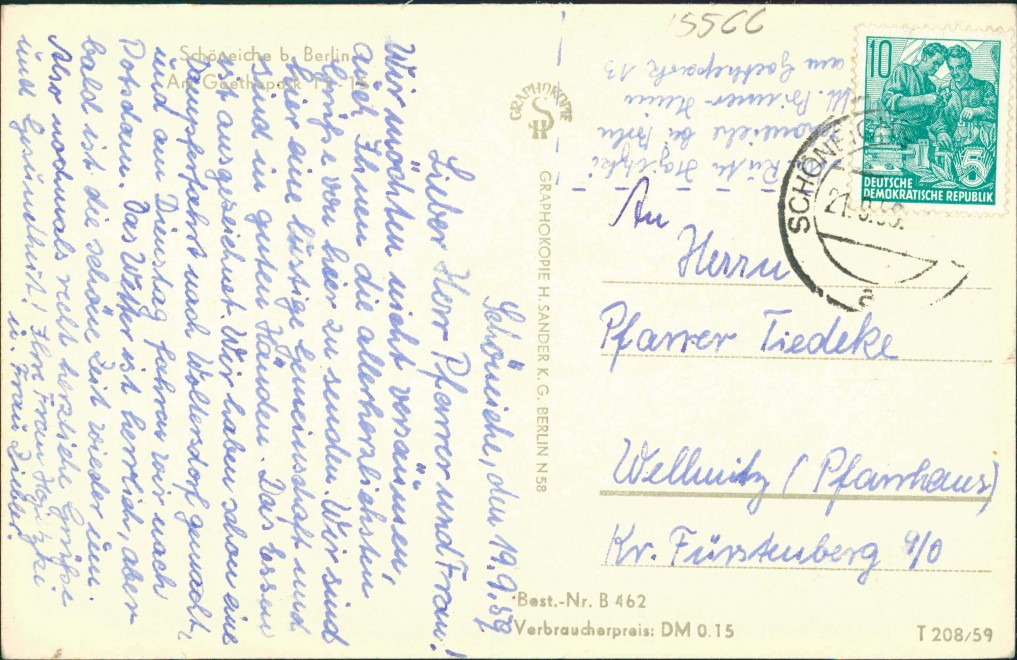 5566
Schöneiche b. Berlin
Am Goethepark 11-15
Schöneiche, den 19.9.59
Lieber Herr Pfarrer und Frau!
Wir möchten nicht versäumen,
auch Ihnen die allerherzlichsten
Grüße von hier zu senden. Wir sind
hier eine lustige Gemeinschaft und
sind in guten Händen. Das Essen
ist ausgezeichnet. Wir haben schon eine
Dampferfahrt nach Woltersdorf gemacht,
und am Dienstag fahren wir nach
Potsdam. Das Wetter ist herrlich, aber
bald ist die schöne Zeit wieder um
Also nochmals recht herzliche Grüße
und Gesundheit! Ihre Frau
u. Frau
GRAPHOKOPIE
H S
GRAPHOKOPIE H. SANDER K. G. BERLIN N 58
bei Bln
am Goethepark 13
10
5
DEUTSCHE
DEMOKRATISCHE REPUBLIK
SCHÖNEICHE
21.9.59.
a
An
Herrn
Pfarrer Tiedeke
Wellmitz (Pfarrhaus)
Kr. Fürstenberg 9/0
Best.-Nr. B 462
Verbraucherpreis: DM 0.15
T 208/59